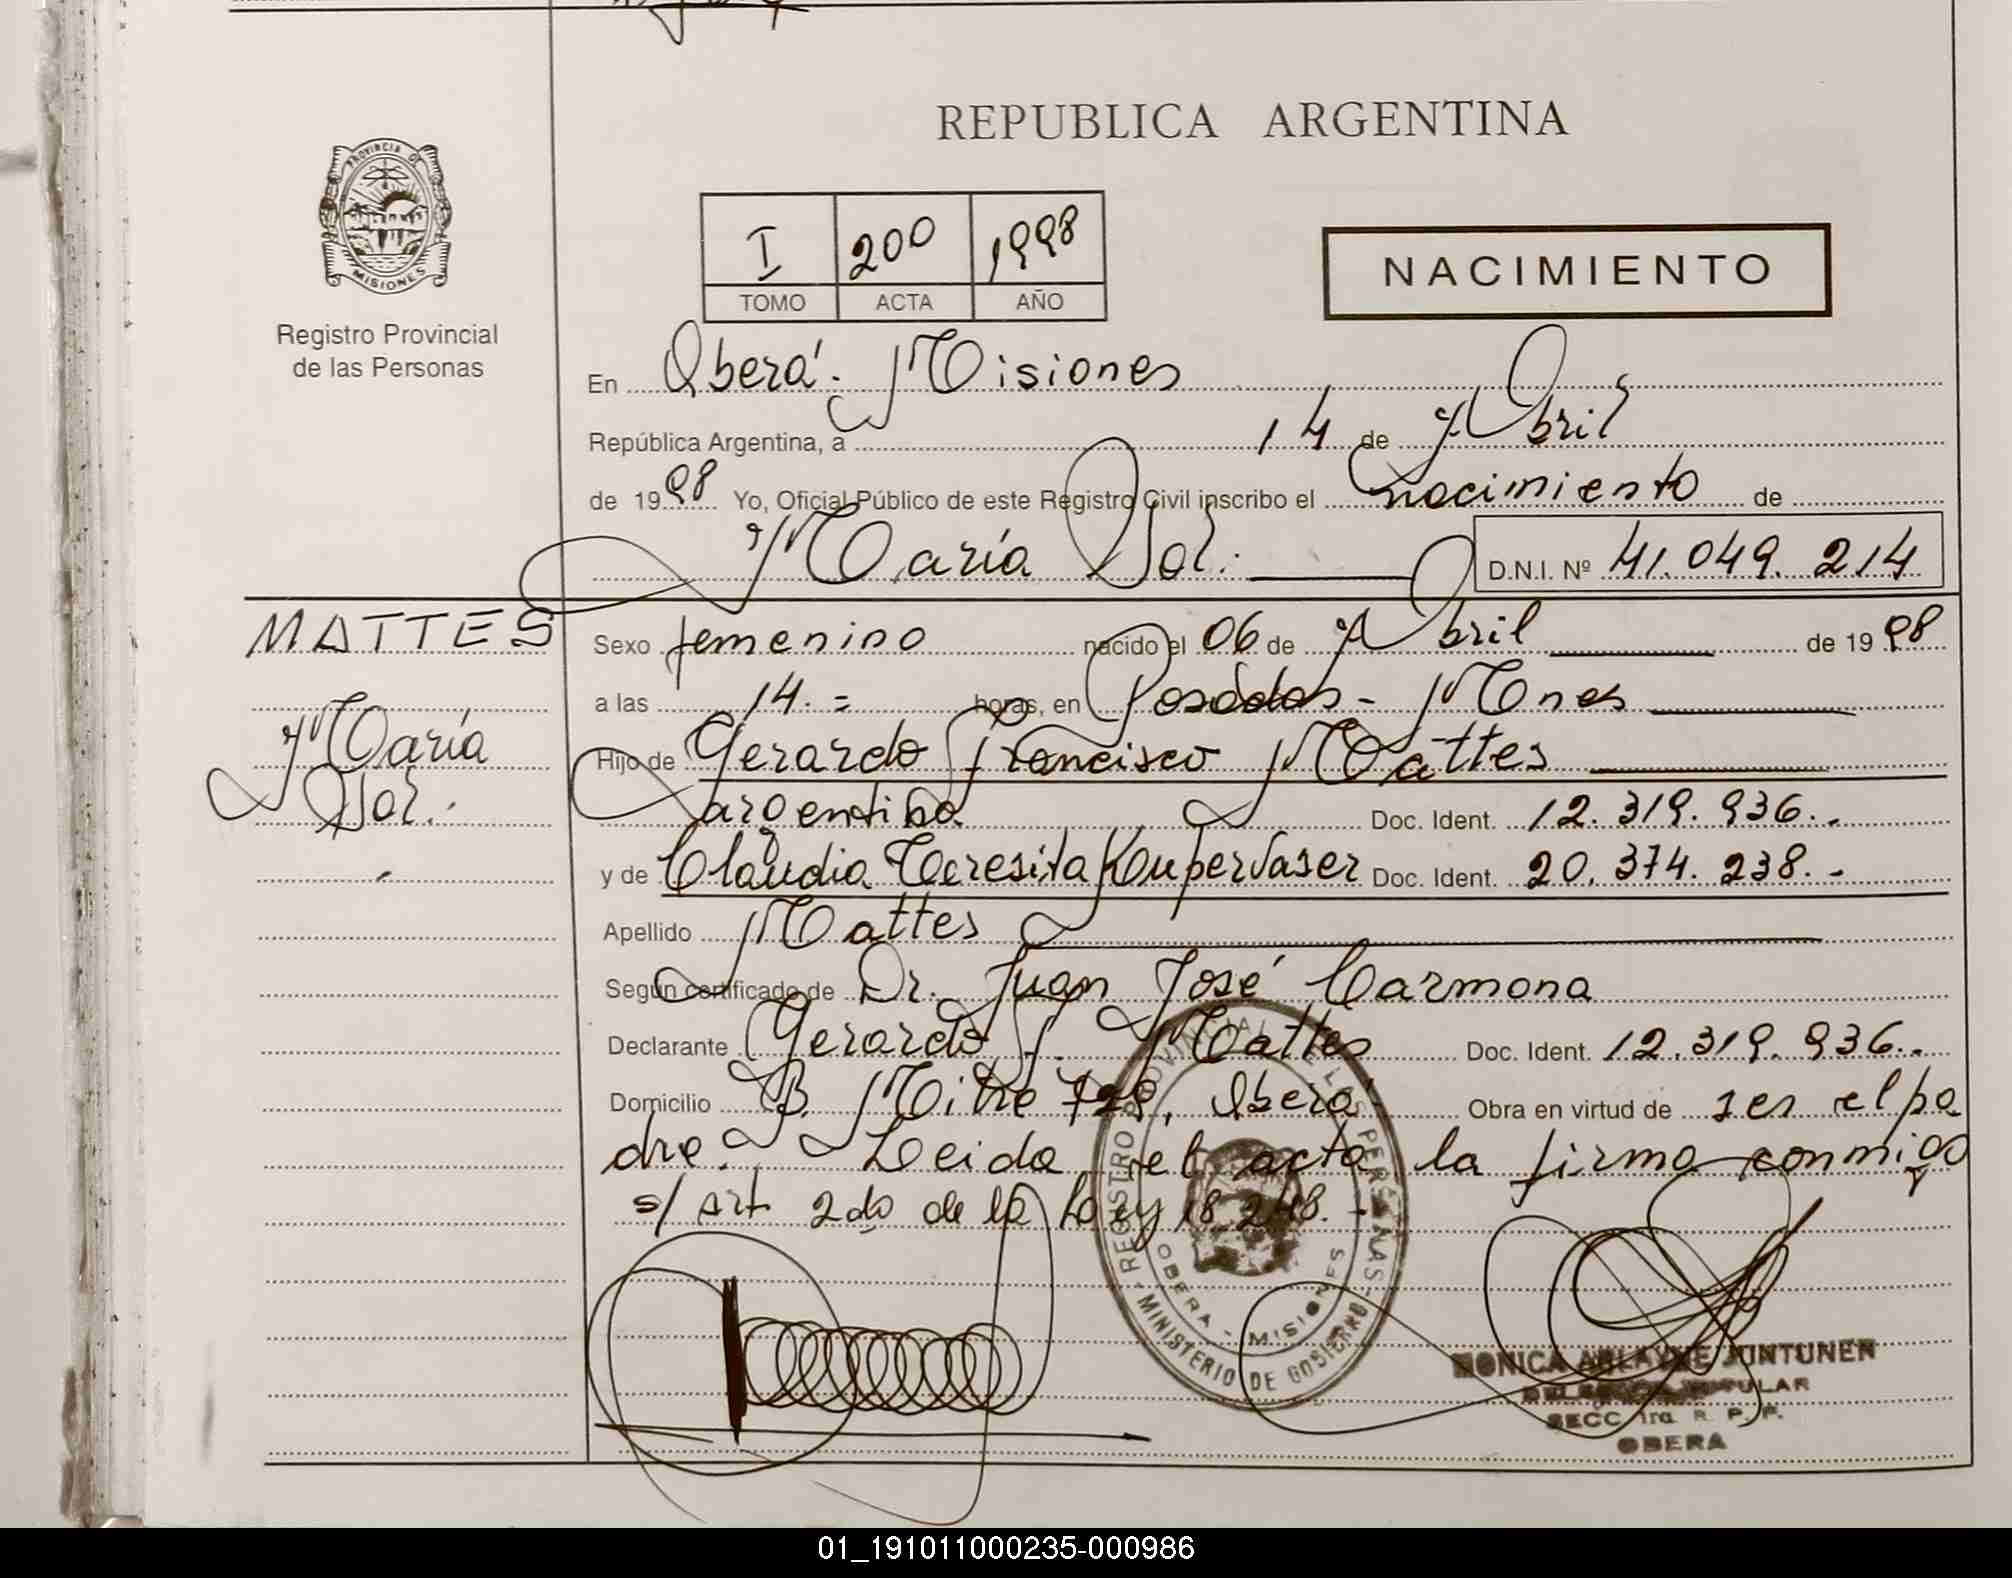 REPUBLICA ARGENTINA
PROVINCIA DE
MISIONES
Registro Provincial
de las Personas
I 200 1998
TOMO ACTA AÑO
NACIMIENTO
En Oberá. Misiones
República Argentina, a 14 de Abril
de 1998 Yo, Oficial Público de este Registro Civil inscribo el nacimiento de
María Sol. D.N.I. Nº 41.049.214
MATTES
María
Sol.
Sexo femenino nacido el 06 de Abril de 1998
a las 14. = horas, en Posadas - Mnes
Hijo de Gerardo Francisco Mattes
argentino Doc. Ident. 12.319.936.
y de Claudia Teresita Kupervaser Doc. Ident. 20.374.238.-
Apellido Mattes
Según certificado de Dr. Juan José Carmona
Declarante Gerardo F. Mattes Doc. Ident. 12.319.936.
Domicilio B. Mitre 729, Oberá Obra en virtud de ser el pa
dre. Leida el acta la firma conmigo
s/ art 2do de la Ley 18.248. -
REGISTRO PROVINCIAL DE LAS PERSONAS
OBERA - MISIONES
MINISTERIO DE GOBIERNO
MONICA JUNTUNEN
TITULAR
SECC. 1ra R. P. P.
OBERA
01_191011000235-000986